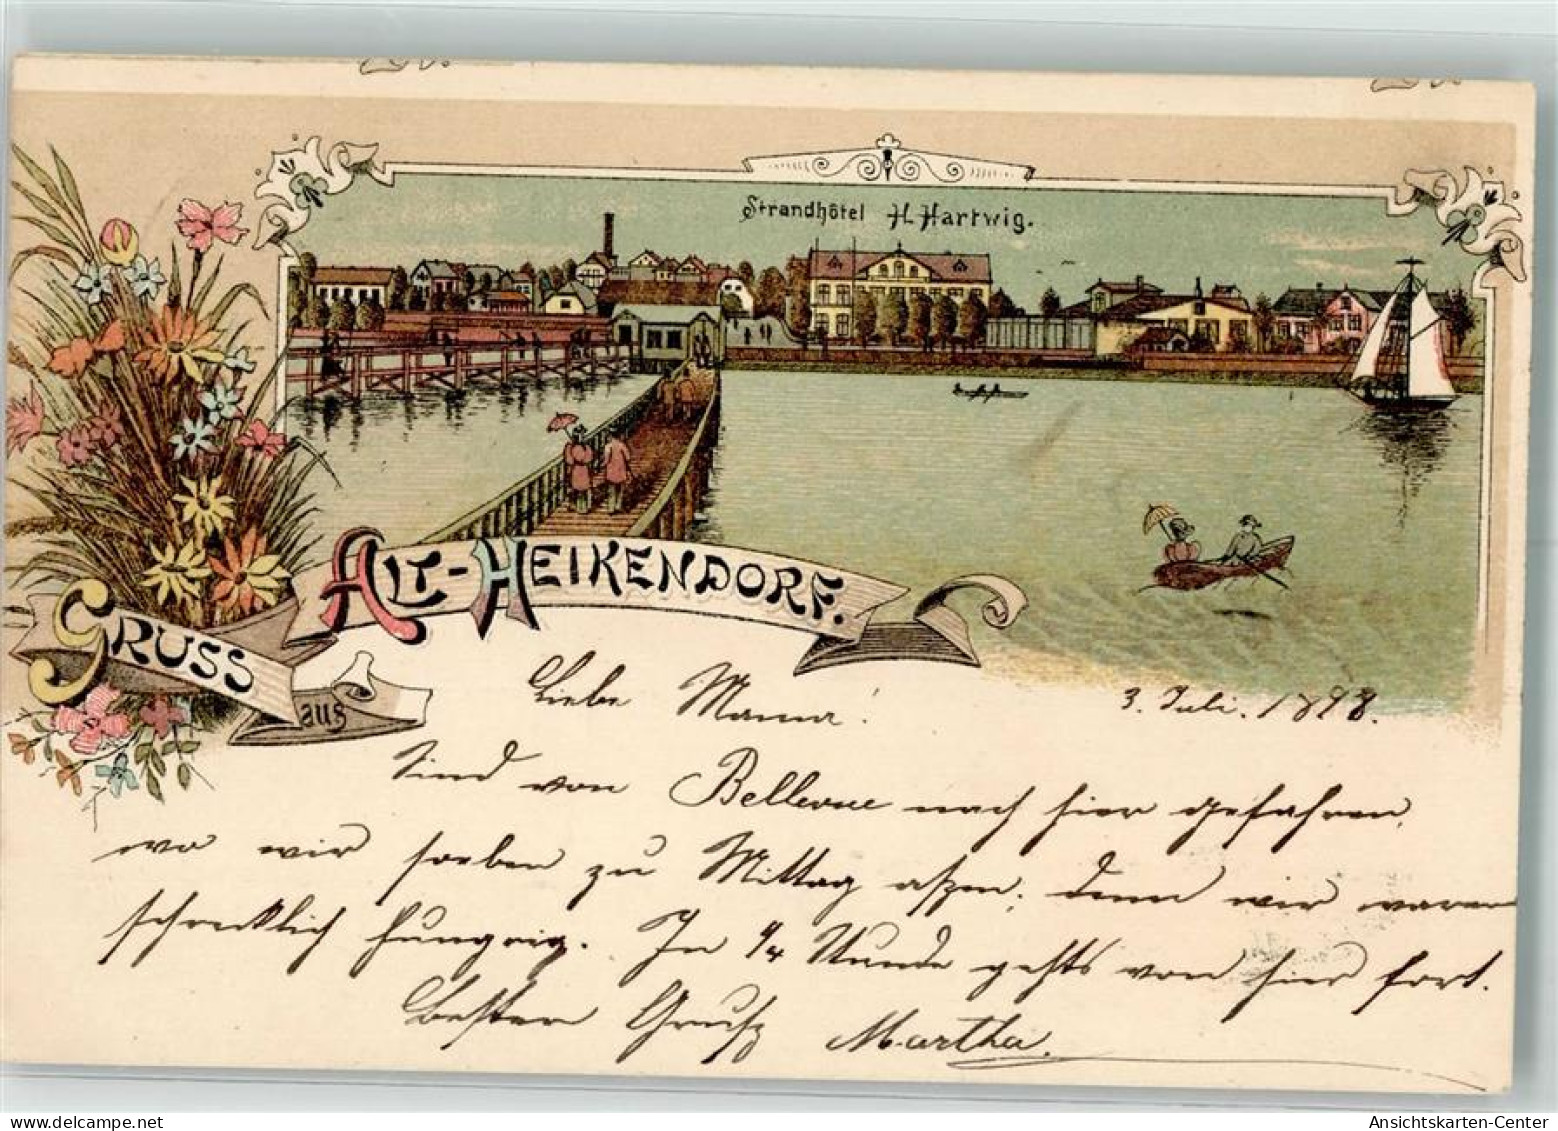 Strandhôtel H. Hartwig.
GRUSS
aus
ALT-HEIKENDORF.
Liebe Mama!
3. Juli. 1898.
Sind von Bellevue nach hier gefahren,
wo wir soeben zu Mittag aßen; denn wir waren
schrecklich hungrig. In ¼ Stunde gehts von hier fort.
Besten Gruß Martha.
www.delcampe.net
Ansichtskarten-Center